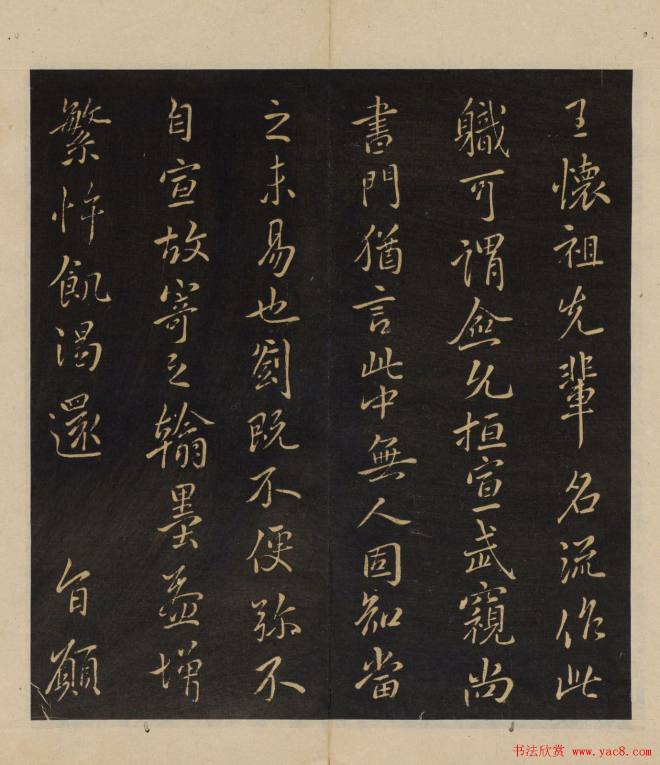 王懷祖先輩名流作此
職可謂僉允桓宣武窺尚
書門猶言此中無人固知當
之未易也劉既不便弥不
自宣故寄之翰墨益增
繁忤飢渴還
旨願
书法欣赏 www.yac8.com